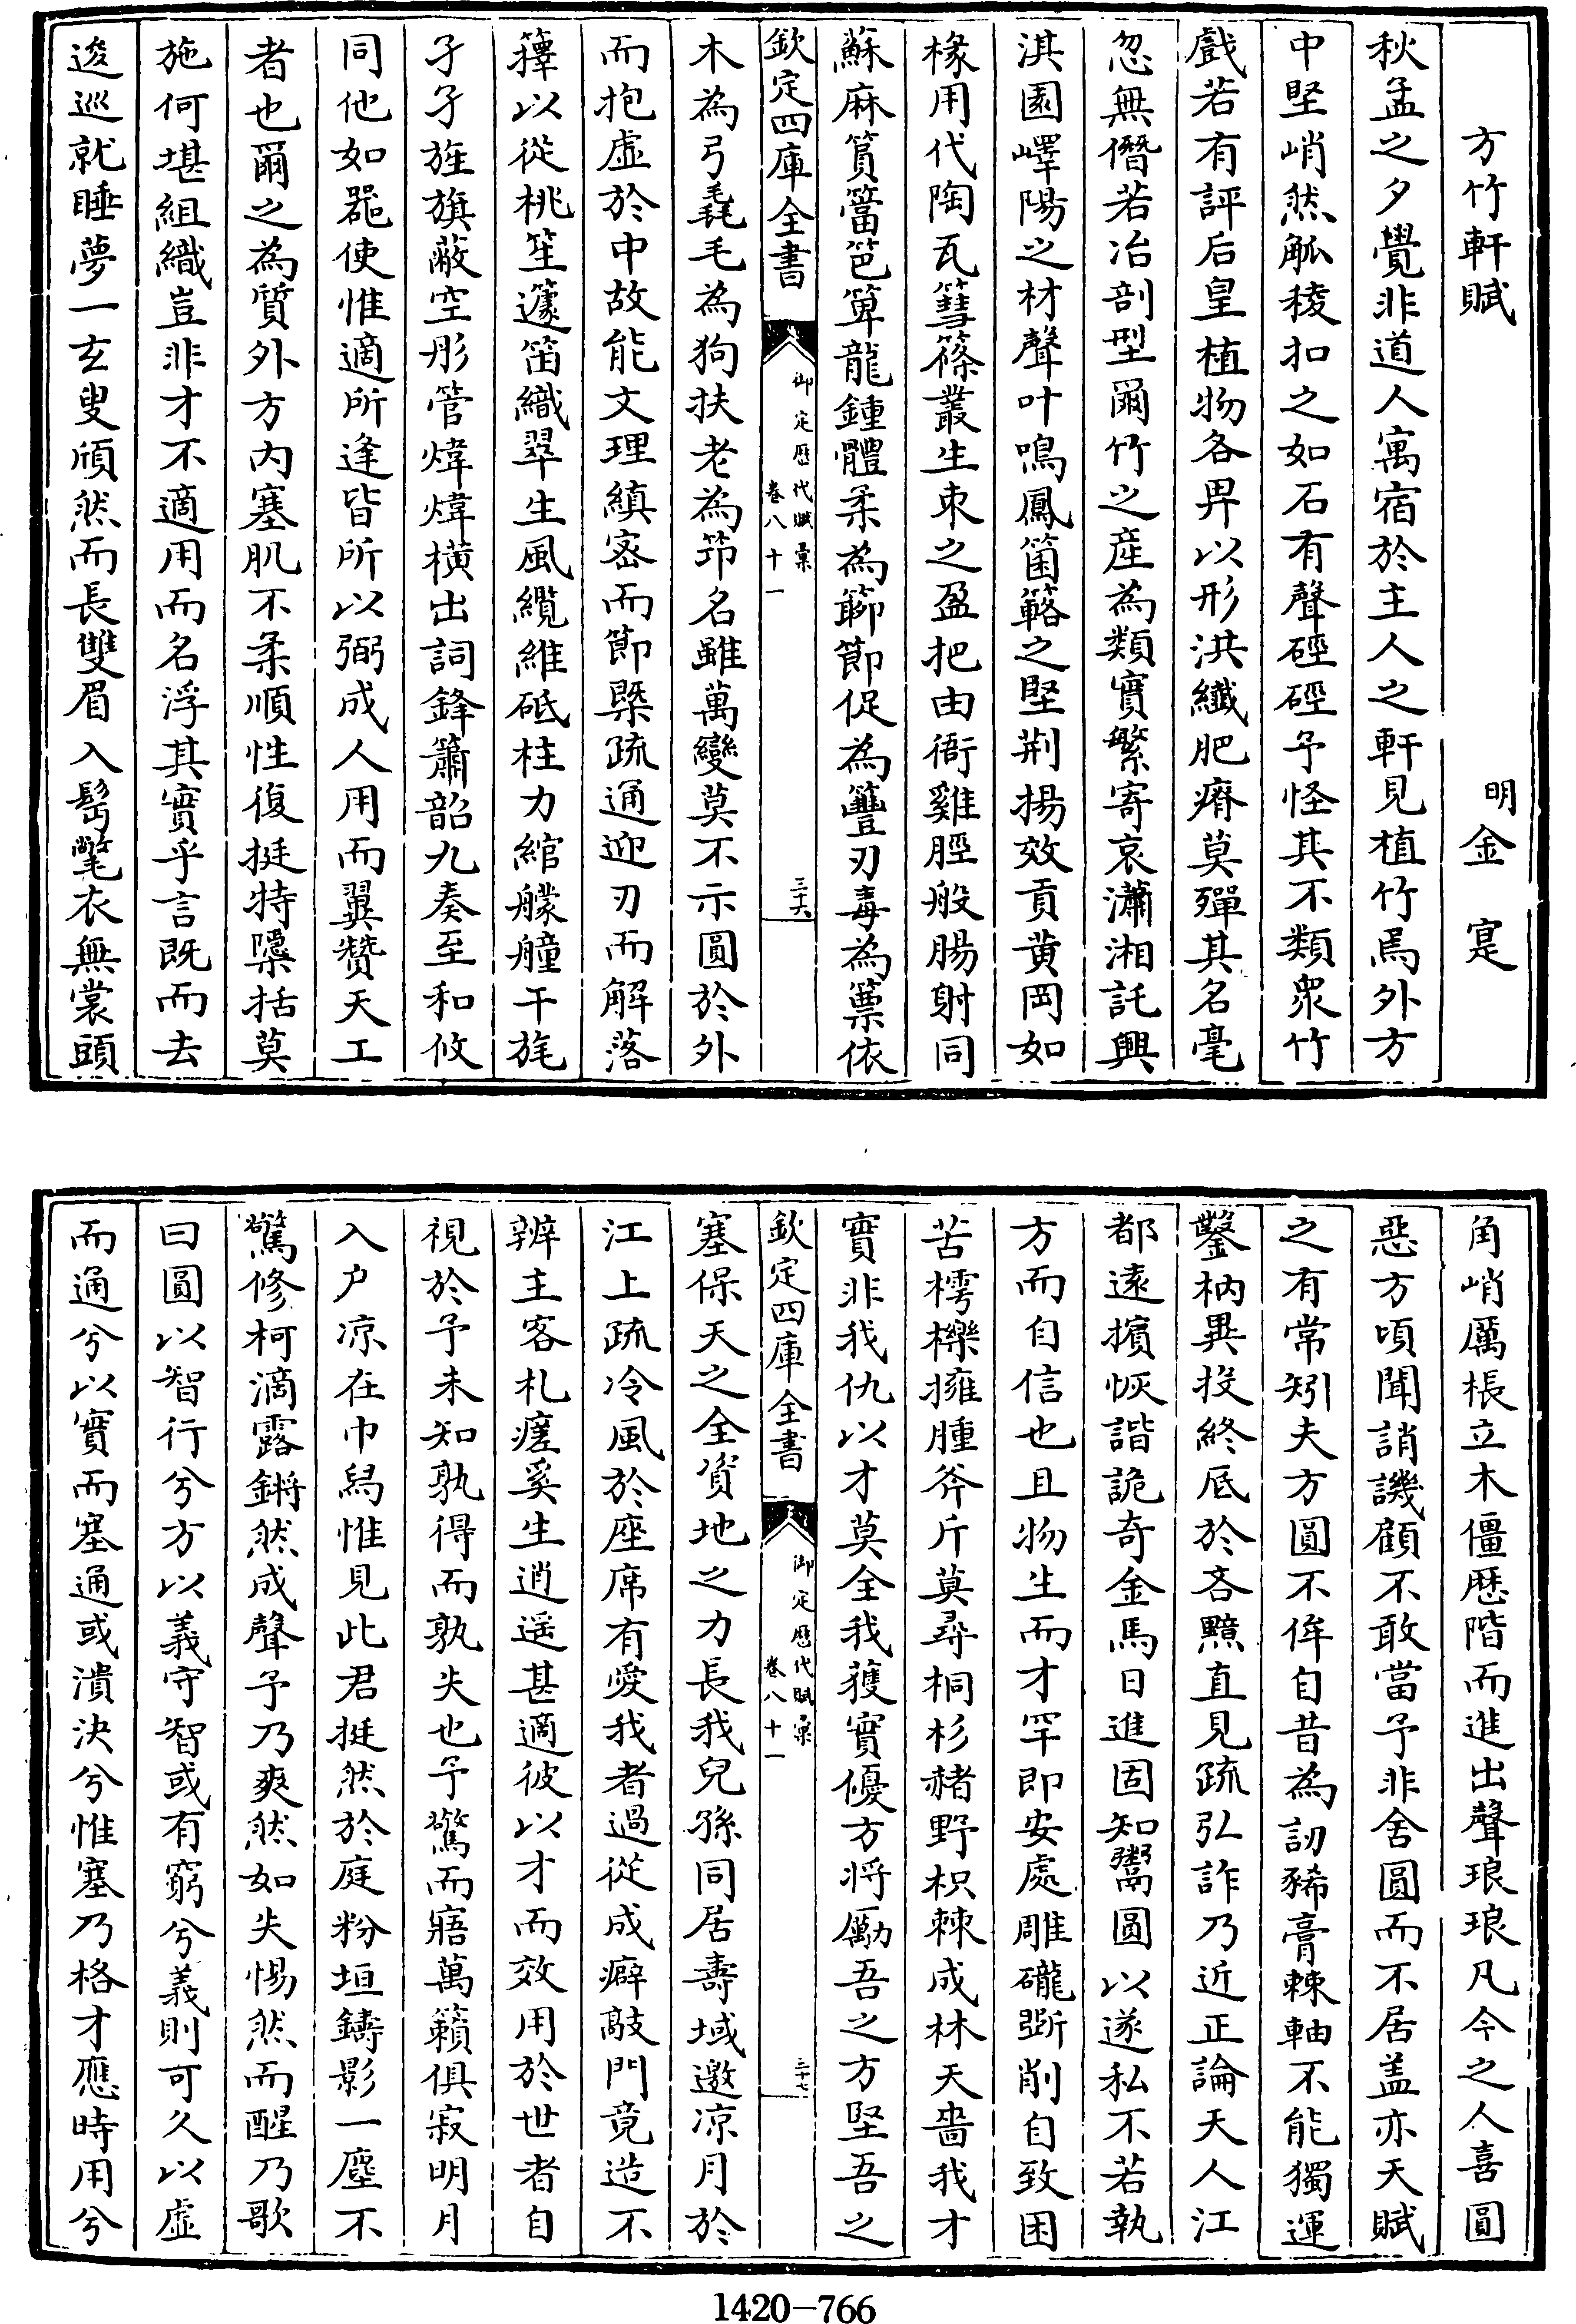 方竹軒賦
明金寔
秋孟之夕覺非道人寓宿於主人之軒見植竹焉外方
中堅峭然觚稜扣之如石有聲硜硜予怪其不類衆竹
戲若有評后皇植物各畀以形洪纖肥瘠莫殫其名毫
忽無僭若冶剖型爾竹之産為類實繁寄哀瀟湘託興
淇園嶧陽之材聲叶鳴鳳箘簵之堅荆揚效貢黄岡如
椽用代陶瓦篲篠叢生束之盈把由衙雞脛般腸射同
蘇麻篔簹笆箄龍鍾體柔為䈟節促為籉刃毒為篻依
欽定四庫全書
御定歷代賦彙
卷八十一
三十六
木為弓毳毛為狗扶老為笻名雖萬變莫不示圓於外
而抱虛於中故能文理縝密而節槩疏通迎刃而解落
籜以從桃笙籧笛織翠生風纜維砥柱力綰艨艟干旄
孑孑旌旗蔽空彤管煒煒横出詞鋒簫韶九奏至和攸
同他如噐使惟適所逢皆所以弼成人用而翼贊天工
者也爾之為質外方内塞肌不柔順性復挺特檃括莫
施何堪組織豈非才不適用而名浮其實乎言既而去
逡巡就睡夢一玄叟頎然而長雙眉入髩氅衣無裳頭
角峭厲棖立木僵歷階而進出聲琅琅凡今之人喜圓
惡方頃聞誚譏顧不敢當予非舍圓而不居盖亦天賦
之有常矧夫方圓不侔自昔為訒豨膏棘軸不能獨運
鑿枘異投終底於吝黯直見疏弘詐乃近正論天人江
都遠擯恢諧詭奇金馬日進固知鬻圓以遂私不若執
方而自信也且物生而才罕即安處雕礲斲削自致困
苦樗櫟擁腫斧斤莫尋桐杉赭野枳棘成林天嗇我才
實非我仇以才莫全我獲實優方将勵吾之方堅吾之
欽定四庫全書
御定歷代賦彙
卷八十一
三十七
塞保天之全資地之力長我兒孫同居壽域邀凉月於
江上疏冷風於座席有愛我者過從成癖敲門竟造不
辨主客札瘥奚生逍遥甚適彼以才而效用於世者自
視於予未知孰得而孰失也予驚而寤萬籟俱寂明月
入户凉在巾舄惟見此君挺然於庭粉垣鑄影一塵不
驚修柯滴露鏘然成聲予乃爽然如失惕然而醒乃歌
曰圓以智行兮方以義守智或有窮兮義則可久以虛
而通兮以實而塞通或潰決兮惟塞乃格才應時用兮
1420-766